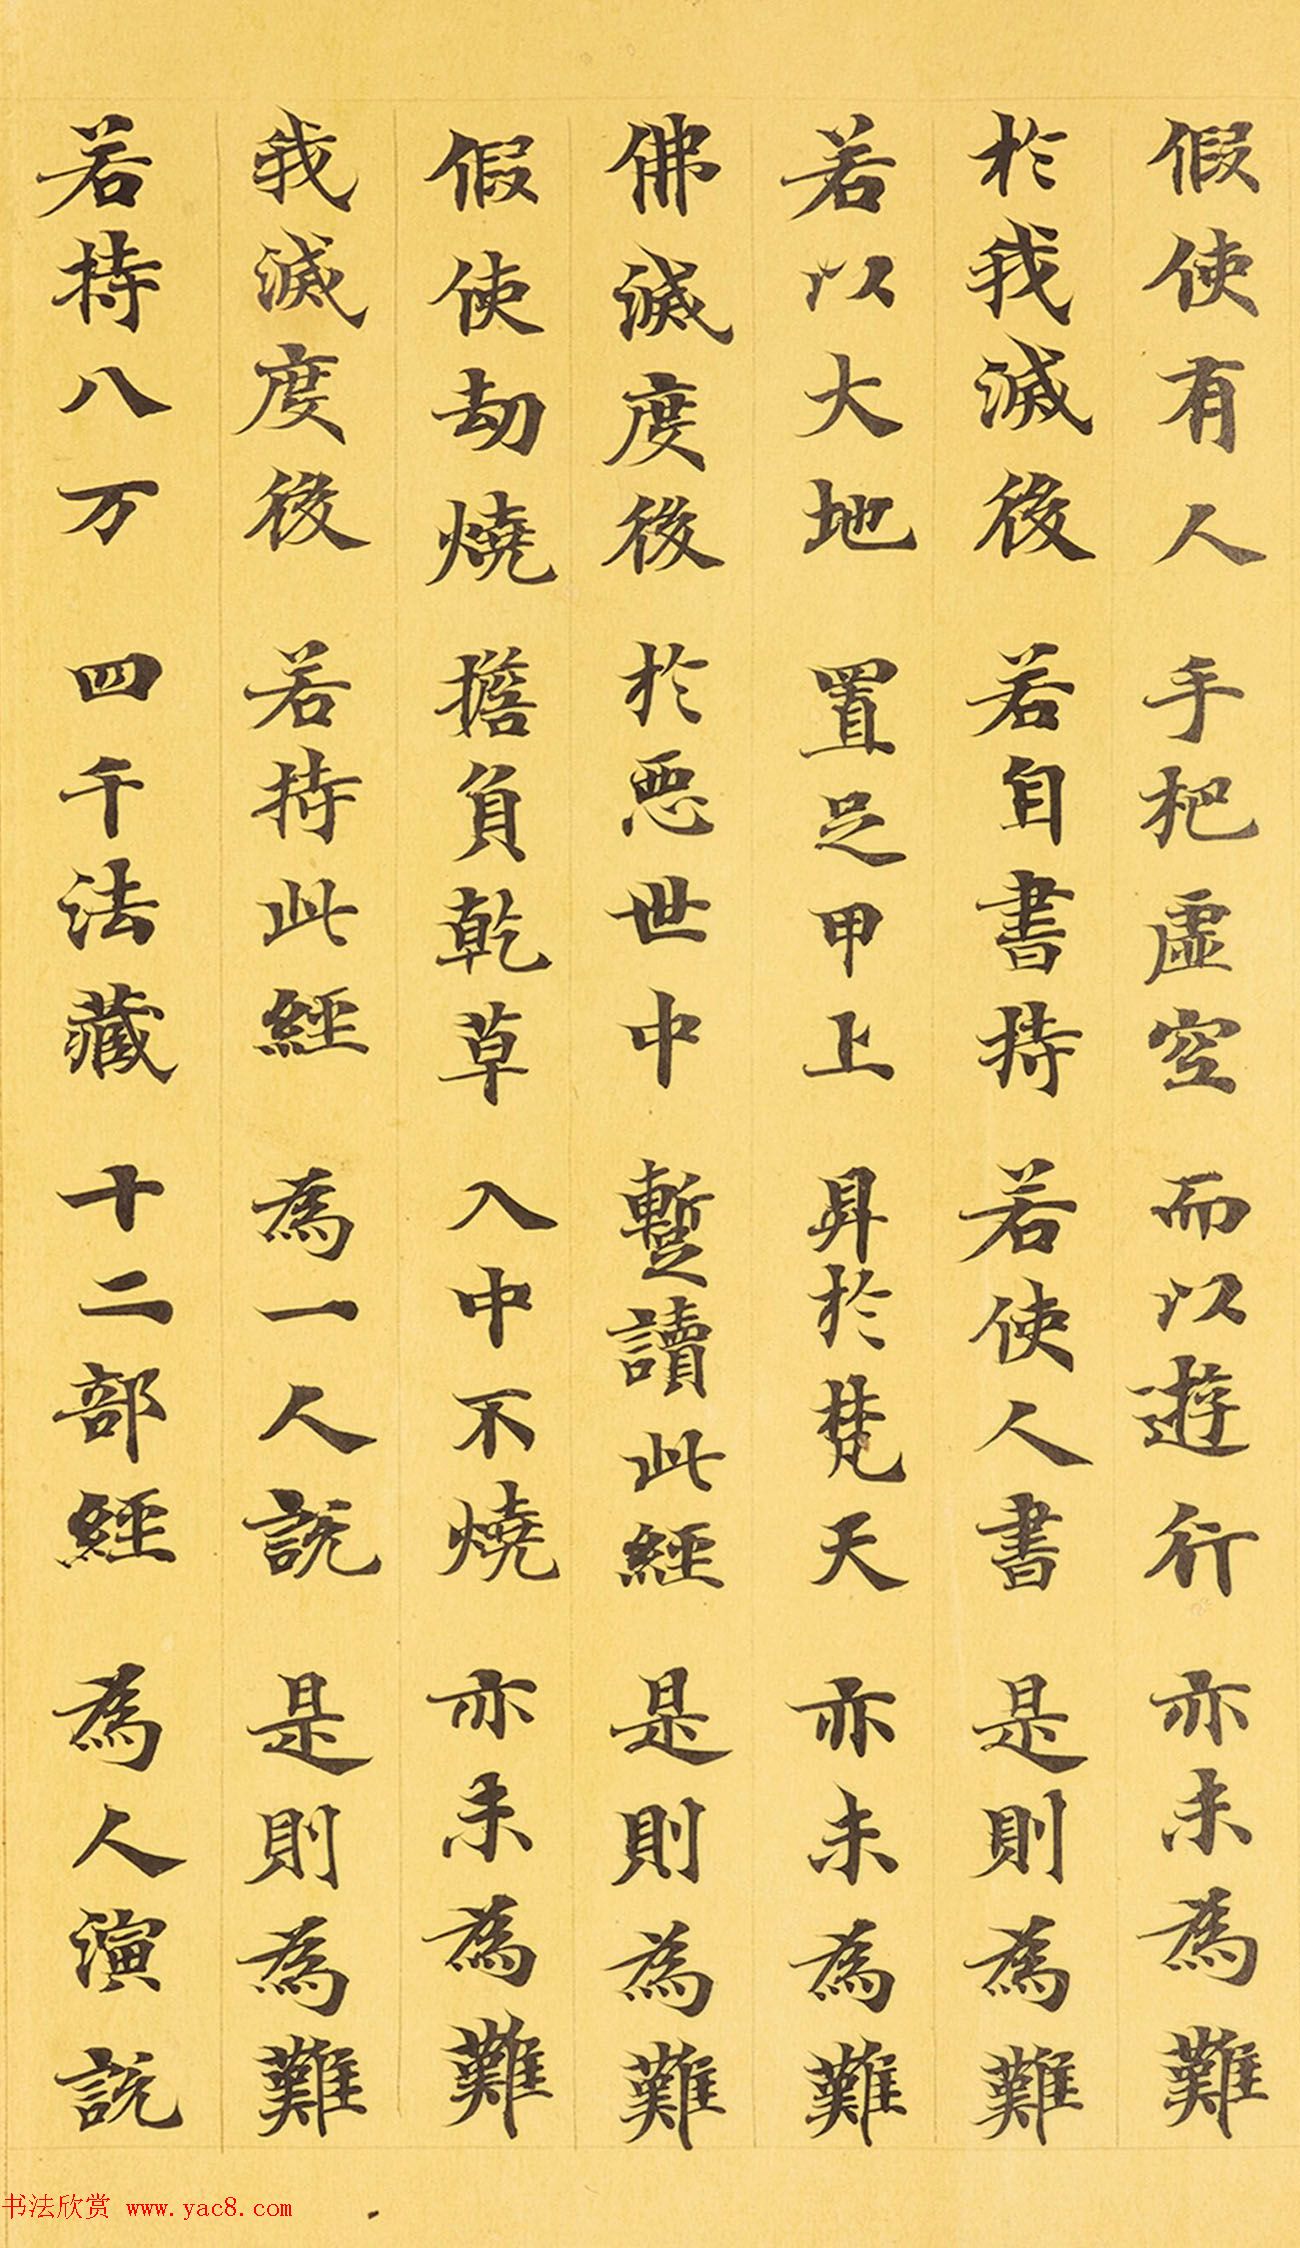 假使有人 手把虛空 而以遊行 亦未為難
於我滅後 若自書持 若使人書 是則為難
若以大地 置足甲上 昇於梵天 亦未為難
佛滅度後 於惡世中 暫讀此經 是則為難
假使劫燒 擔負乾草 入中不燒 亦未為難
我滅度後 若持此經 為一人說 是則為難
若持八万 四千法藏 十二部經 為人演說
书法欣赏 www.yac8.com